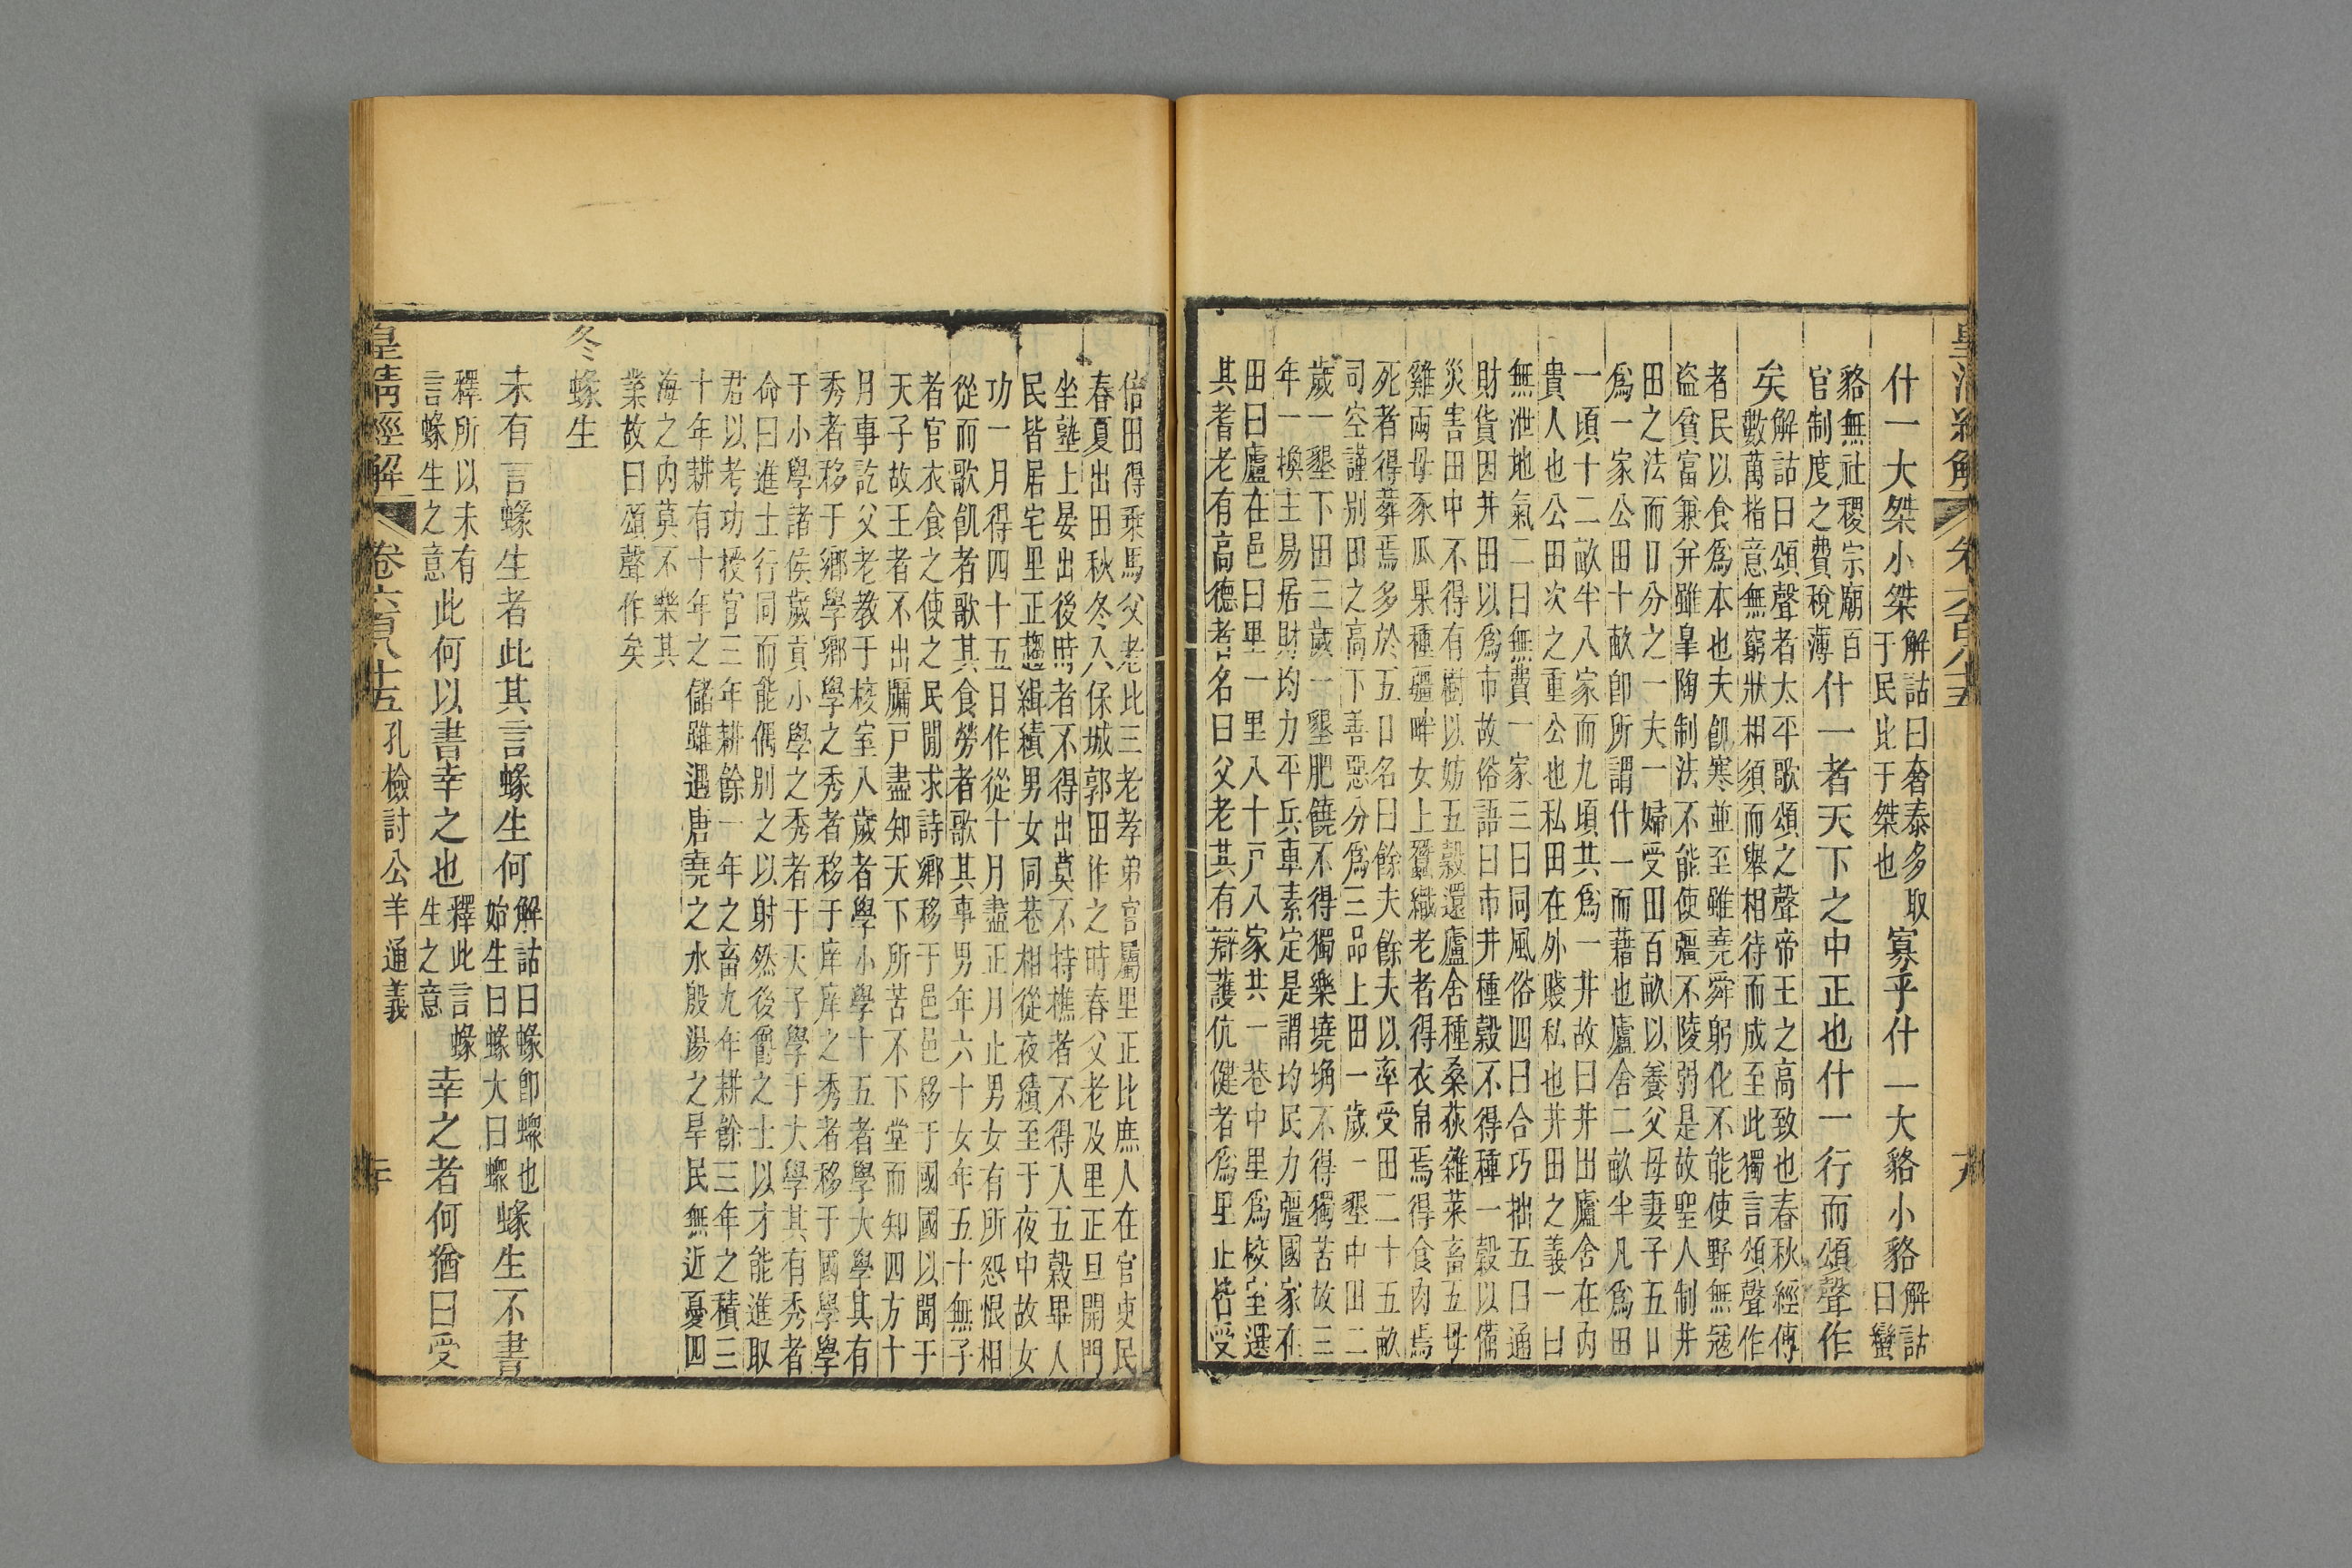 皇清經解 卷六百八十五 十九
什一大桀小桀解詁曰奢泰多取于民比于桀也寡乎什一大貉小貉解詁曰蠻
貉無社稷宗廟百官制度之費稅薄什一者天下之中正也什一行而頌聲作
矣解詁曰頌聲者太平歌頌之聲帝王之高致也春秋經傳
數萬指意無窮狀相須而舉相待而成至此獨言頌聲作
者民以食爲本也夫飢寒並至雖堯舜躬化不能使野無寇
盜貧富兼并雖皐陶制法不能使彊不陵弱是故聖人制井
田之法而口分之一夫一婦受田百畝以養父母妻子五口
爲一家公田十畝卽所謂什一而藉也廬舍二畝半凡爲田
一頃十二畝半八家而九頃共爲一井故曰井田廬舍在內
貴人也公田次之重公也私田在外賤私也井田之義一曰
無泄地氣二曰無費一家三曰同風俗四曰合巧拙五曰通
財貨因井田以爲市故俗語曰市井種穀不得種一穀以備
災害田中不得有樹以妨五穀還廬舍種桑荻雜菜畜五母
雞兩母豕瓜果種疆畔女上蠶織老者得衣帛焉得食肉焉
死者得葬焉多於五口名曰餘夫餘夫以率受田二十五畝
司空謹別田之高下善惡分爲三品上田一歲一墾中田二
歲一墾下田三歲一墾肥饒不得獨樂墝埆不得獨苦故三
年一換主易居財均力平兵車素定是謂均民力彊國家在
田曰廬在邑曰里一里八十戶八家共一巷中里爲校室選
其耆老有高德者名曰父老其有辯護伉健者爲里正皆受
倍田得乘馬父老比三老孝弟官屬里正比庶人在官吏民
春夏出田秋冬入保城郭田作之時春父老及里正旦開門
坐塾上晏出後時者不得出莫不持樵者不得入五穀畢入
民皆居宅里正趨緝績男女同巷相從夜績至于夜中故女
功一月得四十五日作從十月盡正月止男女有所怨恨相
從而歌飢者歌其食勞者歌其事男年六十女年五十無子
者官衣食之使之民閒求詩鄉移于邑邑移于國國以聞于
天子故王者不出牖戶盡知天下所苦不下堂而知四方十
月事訖父老教于校室八歲者學小學十五者學大學其有
秀者移于鄉學鄉學之秀者移于庠庠之秀者移于國學學
于小學諸侯歲貢小學之秀者于天子學于大學其有秀者
命曰進士行同而能偶別之以射然後爵之士以才能進取
君以考功授官三年耕餘一年之畜九年耕餘三年之積三
十年耕有十年之儲雖遇唐堯之水殷湯之旱民無近憂四
海之內莫不樂其
業故曰頌聲作矣
冬蝝生
未有言蝝生者此其言蝝生何解詁曰蝝卽螺也始生曰蝝大曰螺蝝生不書
釋所以未有言蝝生之意此何以書幸之也釋此言蝝生之意幸之者何猶曰受
皇清經解 卷六百八十五 孔檢討公羊通義 二十